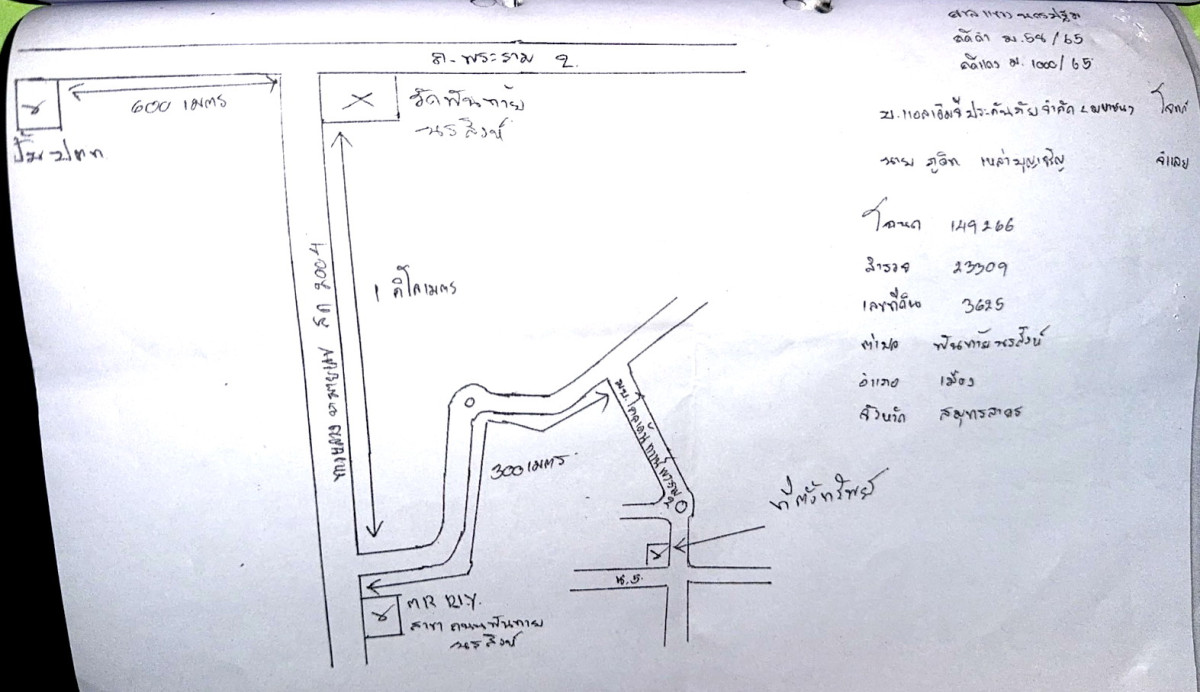 ศาลแขวงนครปฐม
คดีดำ ม.58/65
คดีแดง ม.1000/65
ถ.พระราม 2
600 เมตร
วัดพันท้าย
นรสิงห์
ปั๊ม ปตท
บ.แอลเอ็มจี ประกันภัย จำกัด (มหาชน) โจทก์
นาย เหล่าบุญเจริญ จำเลย
โฉนด 149266
สำรวจ 23309
เลขที่ดิน 3625
ตำบล พันท้ายนรสิงห์
อำเภอ เมือง
จังหวัด สมุทรสาคร
1 กิโลเมตร
สค 2004
300 เมตร
มบ.โกลเด้น
2
ที่ตั้งทรัพย์
ซ.5
MR D.I.Y.
สาขา ถนนพันท้าย
นรสิงห์